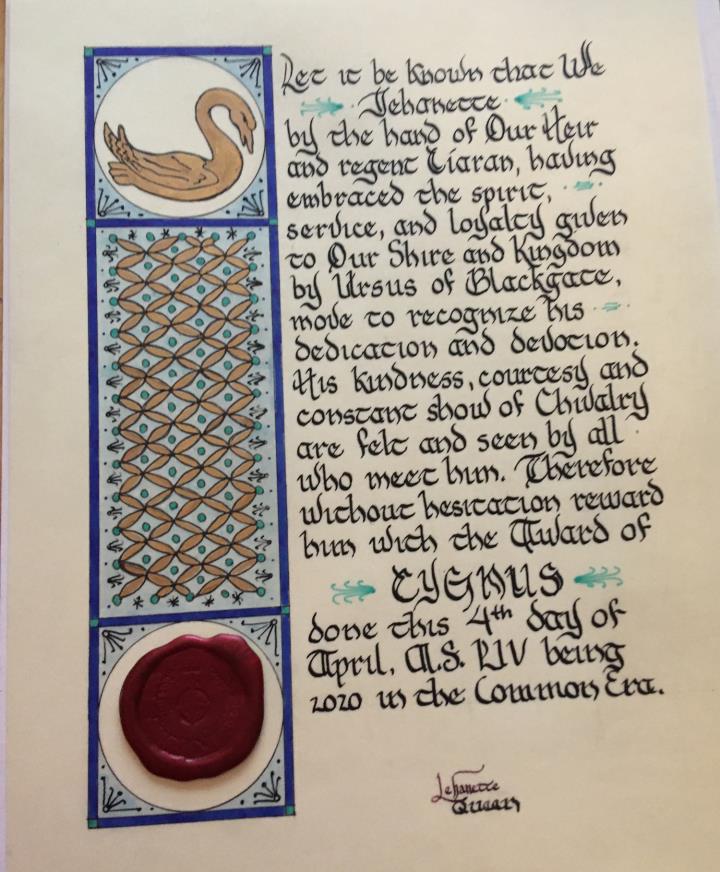 Let it be known that We
Jehanette
by the hand of Our Heir
and regent Ciaran, having
embraced the spirit,
service, and loyalty given
to Our Shire and Kingdom
by Ursus of Blackgate,
move to recognize his
dedication and devotion.
His kindness, courtesy and
constant show of Chivalry
are felt and seen by all
who meet him. Therefore
without hesitation reward
him with the Award of
CYGNUS
done this 4th day of
April, A.S. LIV being
2020 in the Common Era.
Jehanette
Queen